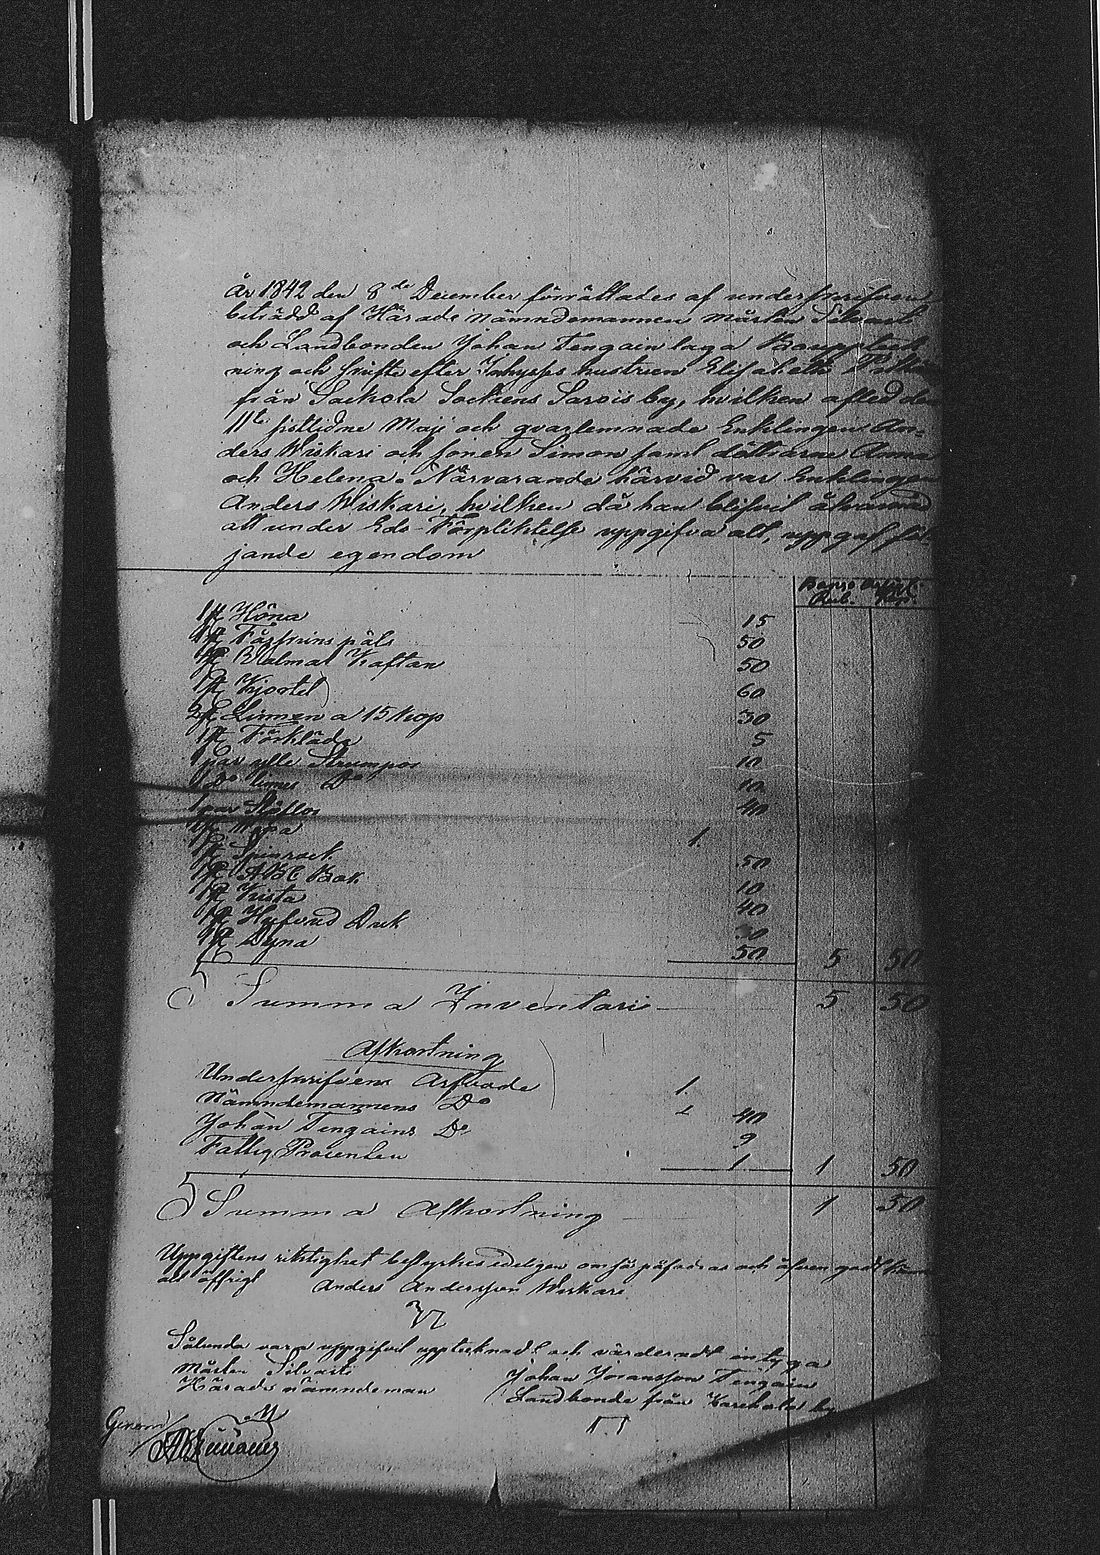 År 1842 den 8de December förrättades af underskrifven
biträdd af Härads Nämndemannen Mårten Silvasti
och Landbonden Johan Tengain laga Bouppteck
ning och skrifte efter Inhyses hustrun Elisabetha
från Sackola Sockens Sarois by, hvilken afled den
11te sistledne Maji och qvarlemnade Enklingen An=
ders Wiskari och sonen Simon samt döttrarne Anna
och Helena. Närvarande härvid var Enklingen
Anders Wiskari, hvilken då han blifvit åtvarnad
att under Eds Förpliktelse uppgifva alt, uppgaf föl
jande egendom
Rub. Kop.
1 st Höna 15
1 st Fårskins päls 50
1 st Valmar Kaftan 50
1 st Kjortel 60
2 st Linnen a 15 Kop 30
1 st Förkläde 5
1 par ylle Strumpor 10
1 Do linnes Do 10
1 par Stöflor 40
1 st 1.
1 st Spinrock 50
1 st ABC Bok 10
1 st Kista 40
1 st Hufvud Duk 30
1 st Dyna 50 5 50
Summa Inventarie 5 50
Afkortning
Underskrifvens Arfvode 1.
Nämndemannens Do 40
Johan Tengains Do 9
Fattig Procenten 1 1 50
Summa Afkortning 1 50
Uppgiftens riktighet bestyrkes edeligen om så påfordras och äfven godt
Anders Andersson Wiskari
Sålunda vara uppgifvit upptecknadt och värderadt intyga
Mårten Silvasti Johan Johansson Tengain
Härads nämndeman Landbonde från Karehola by
Genom